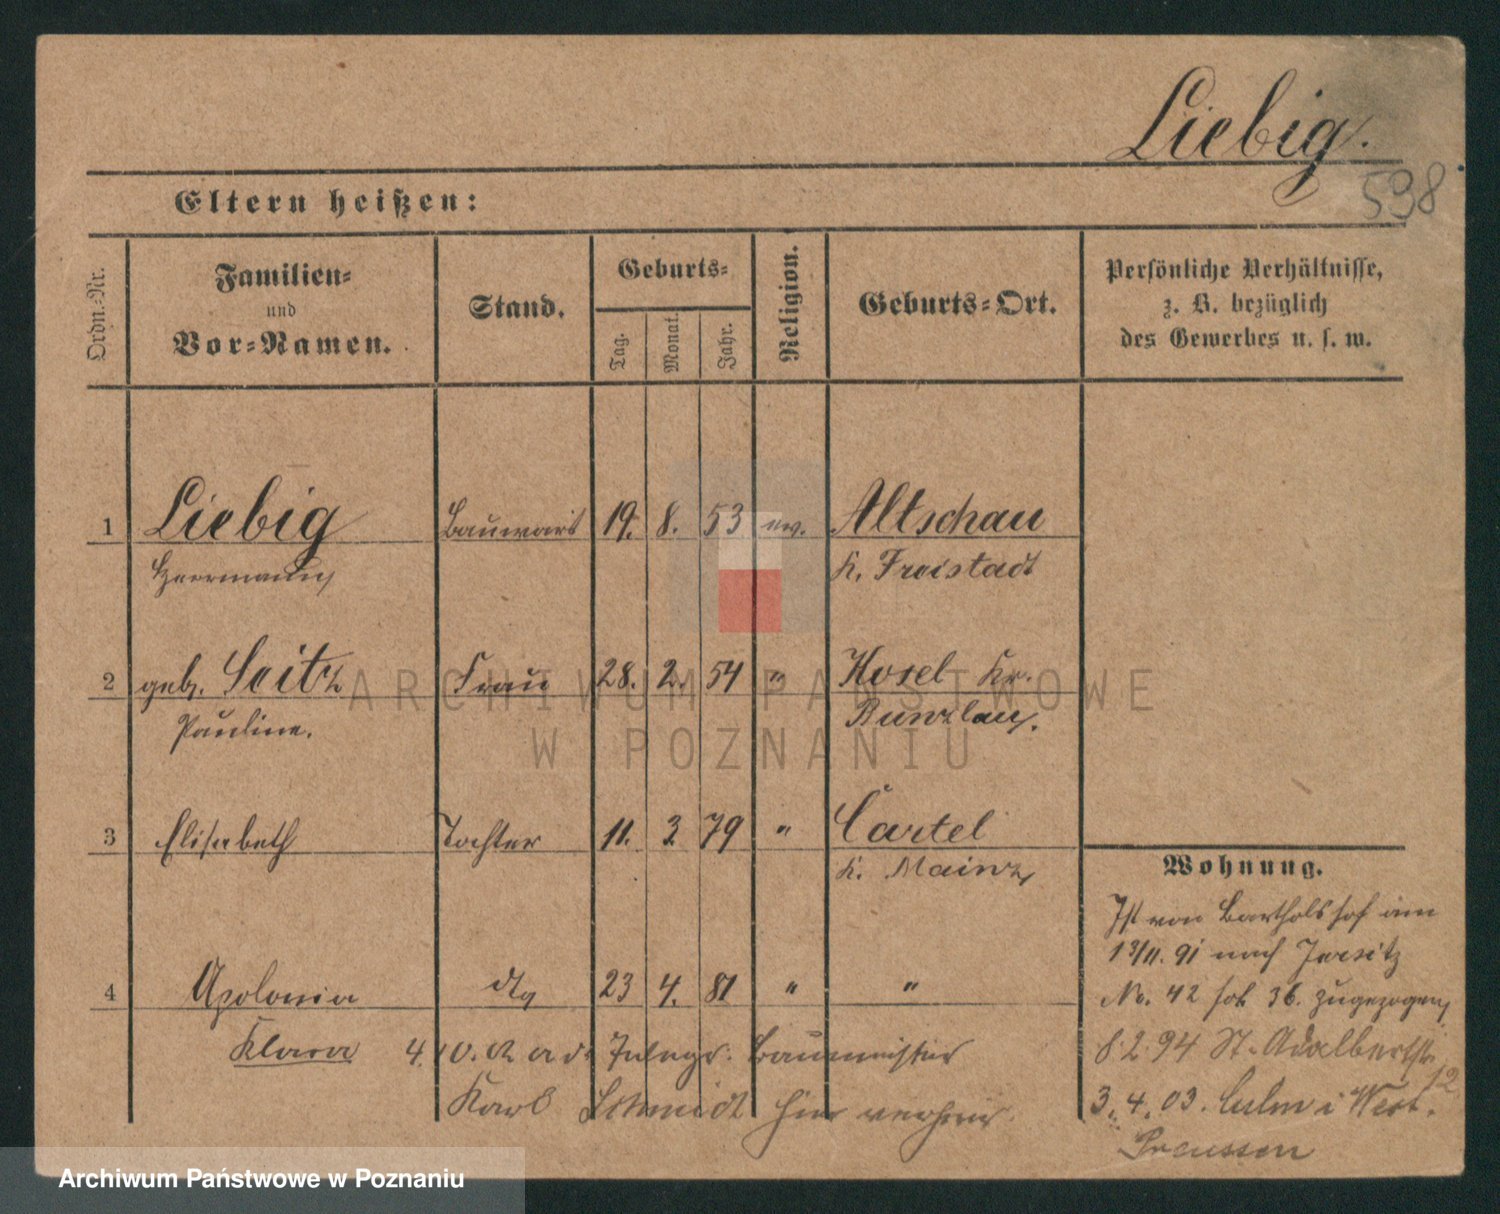 Liebig.
538
Eltern heißen:
Ordn.-Nr.
Familien-
und
Vor-Namen.
Stand.
Geburts-
Tag.
Monat.
Jahr.
Religion.
Geburts-Ort.
Persönliche Verhältnisse,
z. B. bezüglich
des Gewerbes u. s. w.
1 Liebig Bauwart 19. 8. 53 ev. Altschau
Herrmann K. Freistadt
2 geb. Seitz Frau 28. 2. 54 " Kosel Kr.
Pauline. Bunzlau.
3 Elisabeth Tochter 11. 3 79 " Cartel
K. Mainz
4 Apolonia dto 23 4. 81 " "
Klara 4. Telegr. Baumeister
Karl Schmidt hier
Wohnung.
Ist von Bartholshof am
13/11. 91 nach Jersitz
No. 42 36. zugezogen
8.2.94 St. Adalbertstr.
12
3.4.03. Culm i West.
Preussen
ARCHIWUM PAŃSTWOWE
W POZNANIU
Archiwum Państwowe w Poznaniu